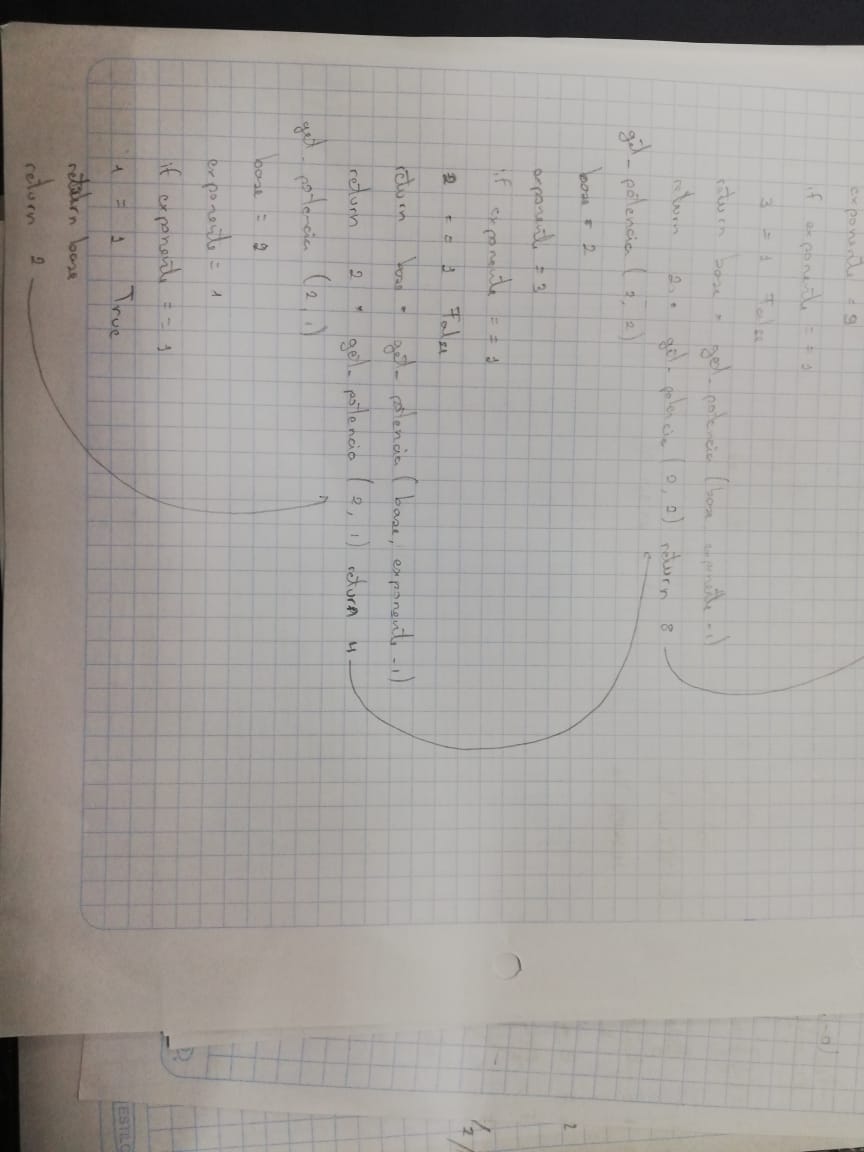 exponente = 3
if exponente == 1
3 = 1 False
return base * get-potencia (base exponente -1)
return 2 * get-potencia (2, 2) return 8
get-potencia (2, 2)
base = 2
exponente = 2
if exponente == 1
2 == 1 False
return base * get-potencia (base, exponente -1)
return 2 * get-potencia (2, 1) return 4
get-potencia (2, 1)
base = 2
exponente = 1
if exponente == 1
1 = 1 True
return base
return 2
ESTILO
1/2/
2